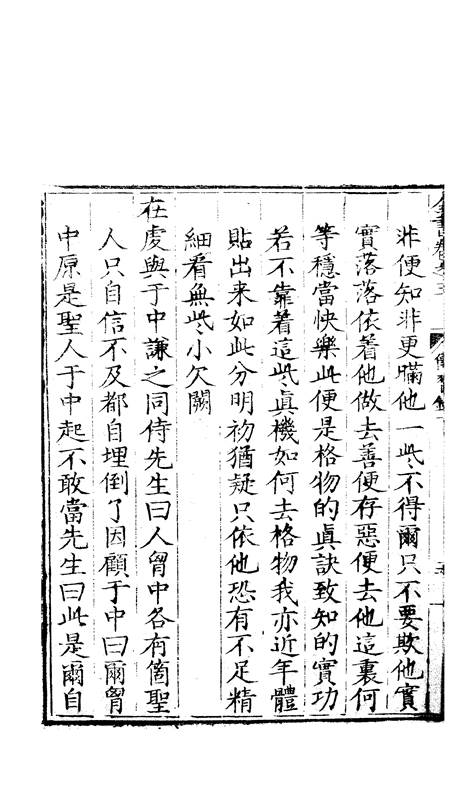 非便知非更瞞他一些不得爾只不要欺他實
實落落依着他做去善便存惡便去他這裏何
等穩當快樂此便是格物的真訣致知的實功
若不靠着這些真機如何去格物我亦近年體
貼出来如此分明初猶疑只依他恐有不足精
細看無些小欠闕
在虔與于中謙之同侍先生曰人胷中各有箇聖
人只自信不及都自埋倒了因顧于中曰爾胷
中原是聖人于中起不敢當先生曰此是爾自